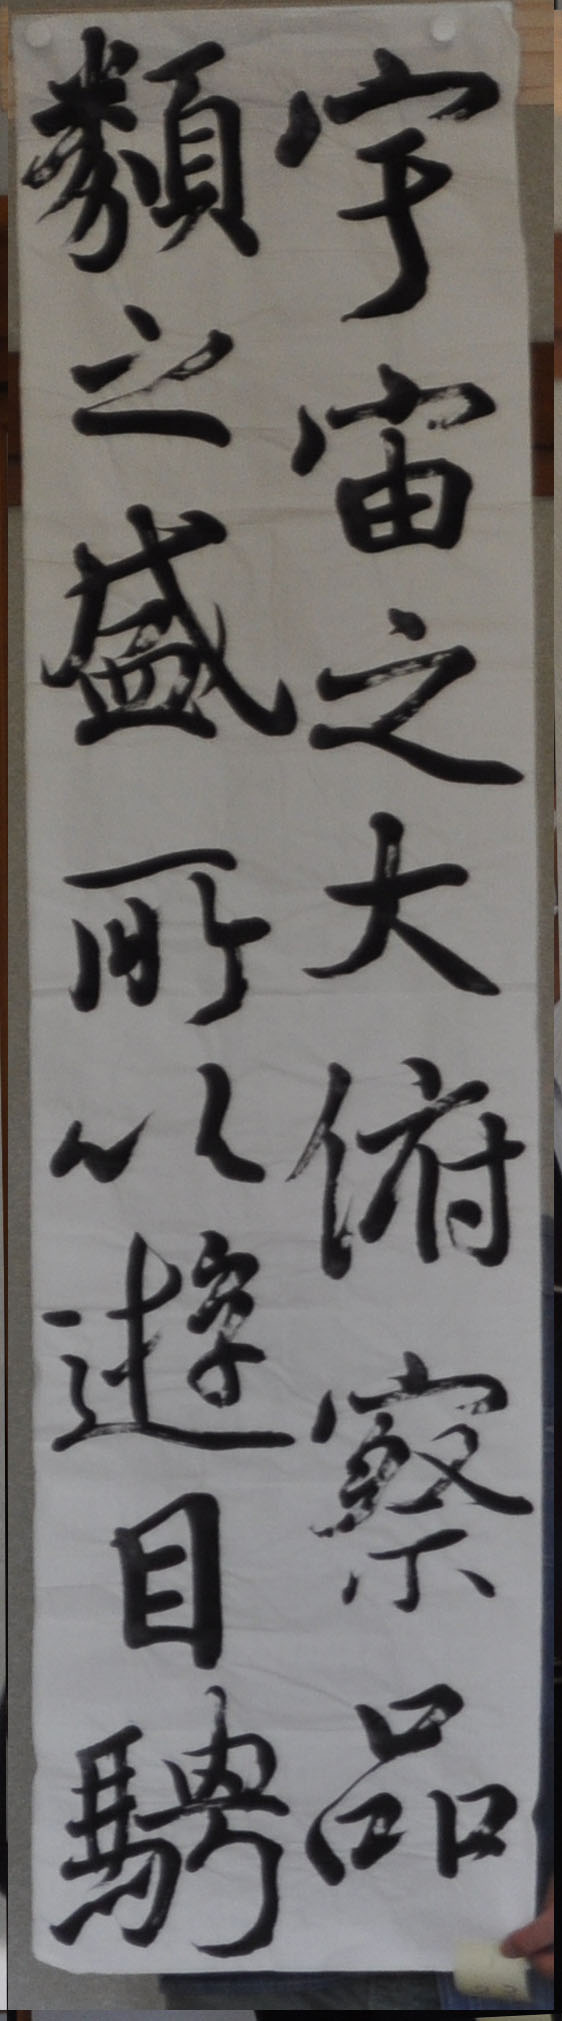 宇宙之大俯察品
類之盛所以遊目騁